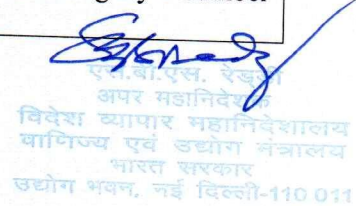 एस.बी.एस. रेड्डी
अपर महानिदेशक
विदेश व्यापार महानिदेशालय
वाणिज्य एवं उद्योग मंत्रालय
भारत सरकार
उद्योग भवन, नई दिल्ली-110 011